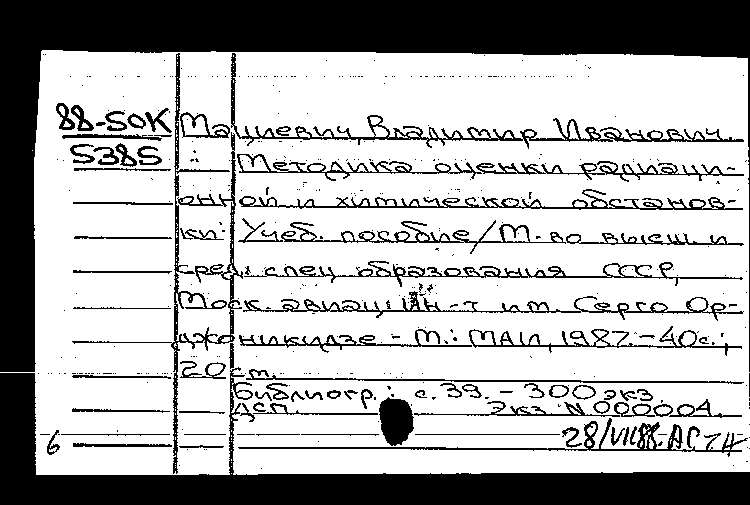 88-SOK Мациевич, Владимир Иванович.
5385 : Методика оценки радиаци-
онной и химической обстанов-
ки: Учеб. пособие/М-во высш. и
сред. спец образования СССР,
Моск. авиац ин-т им. Серго Ор-
джоникидзе - М.: МАИ, 1987. - 40с.;
20см.
Библиогр.: с.39. - 300 экз.
ДСП. Экз. N 000004.
6 28/VII88